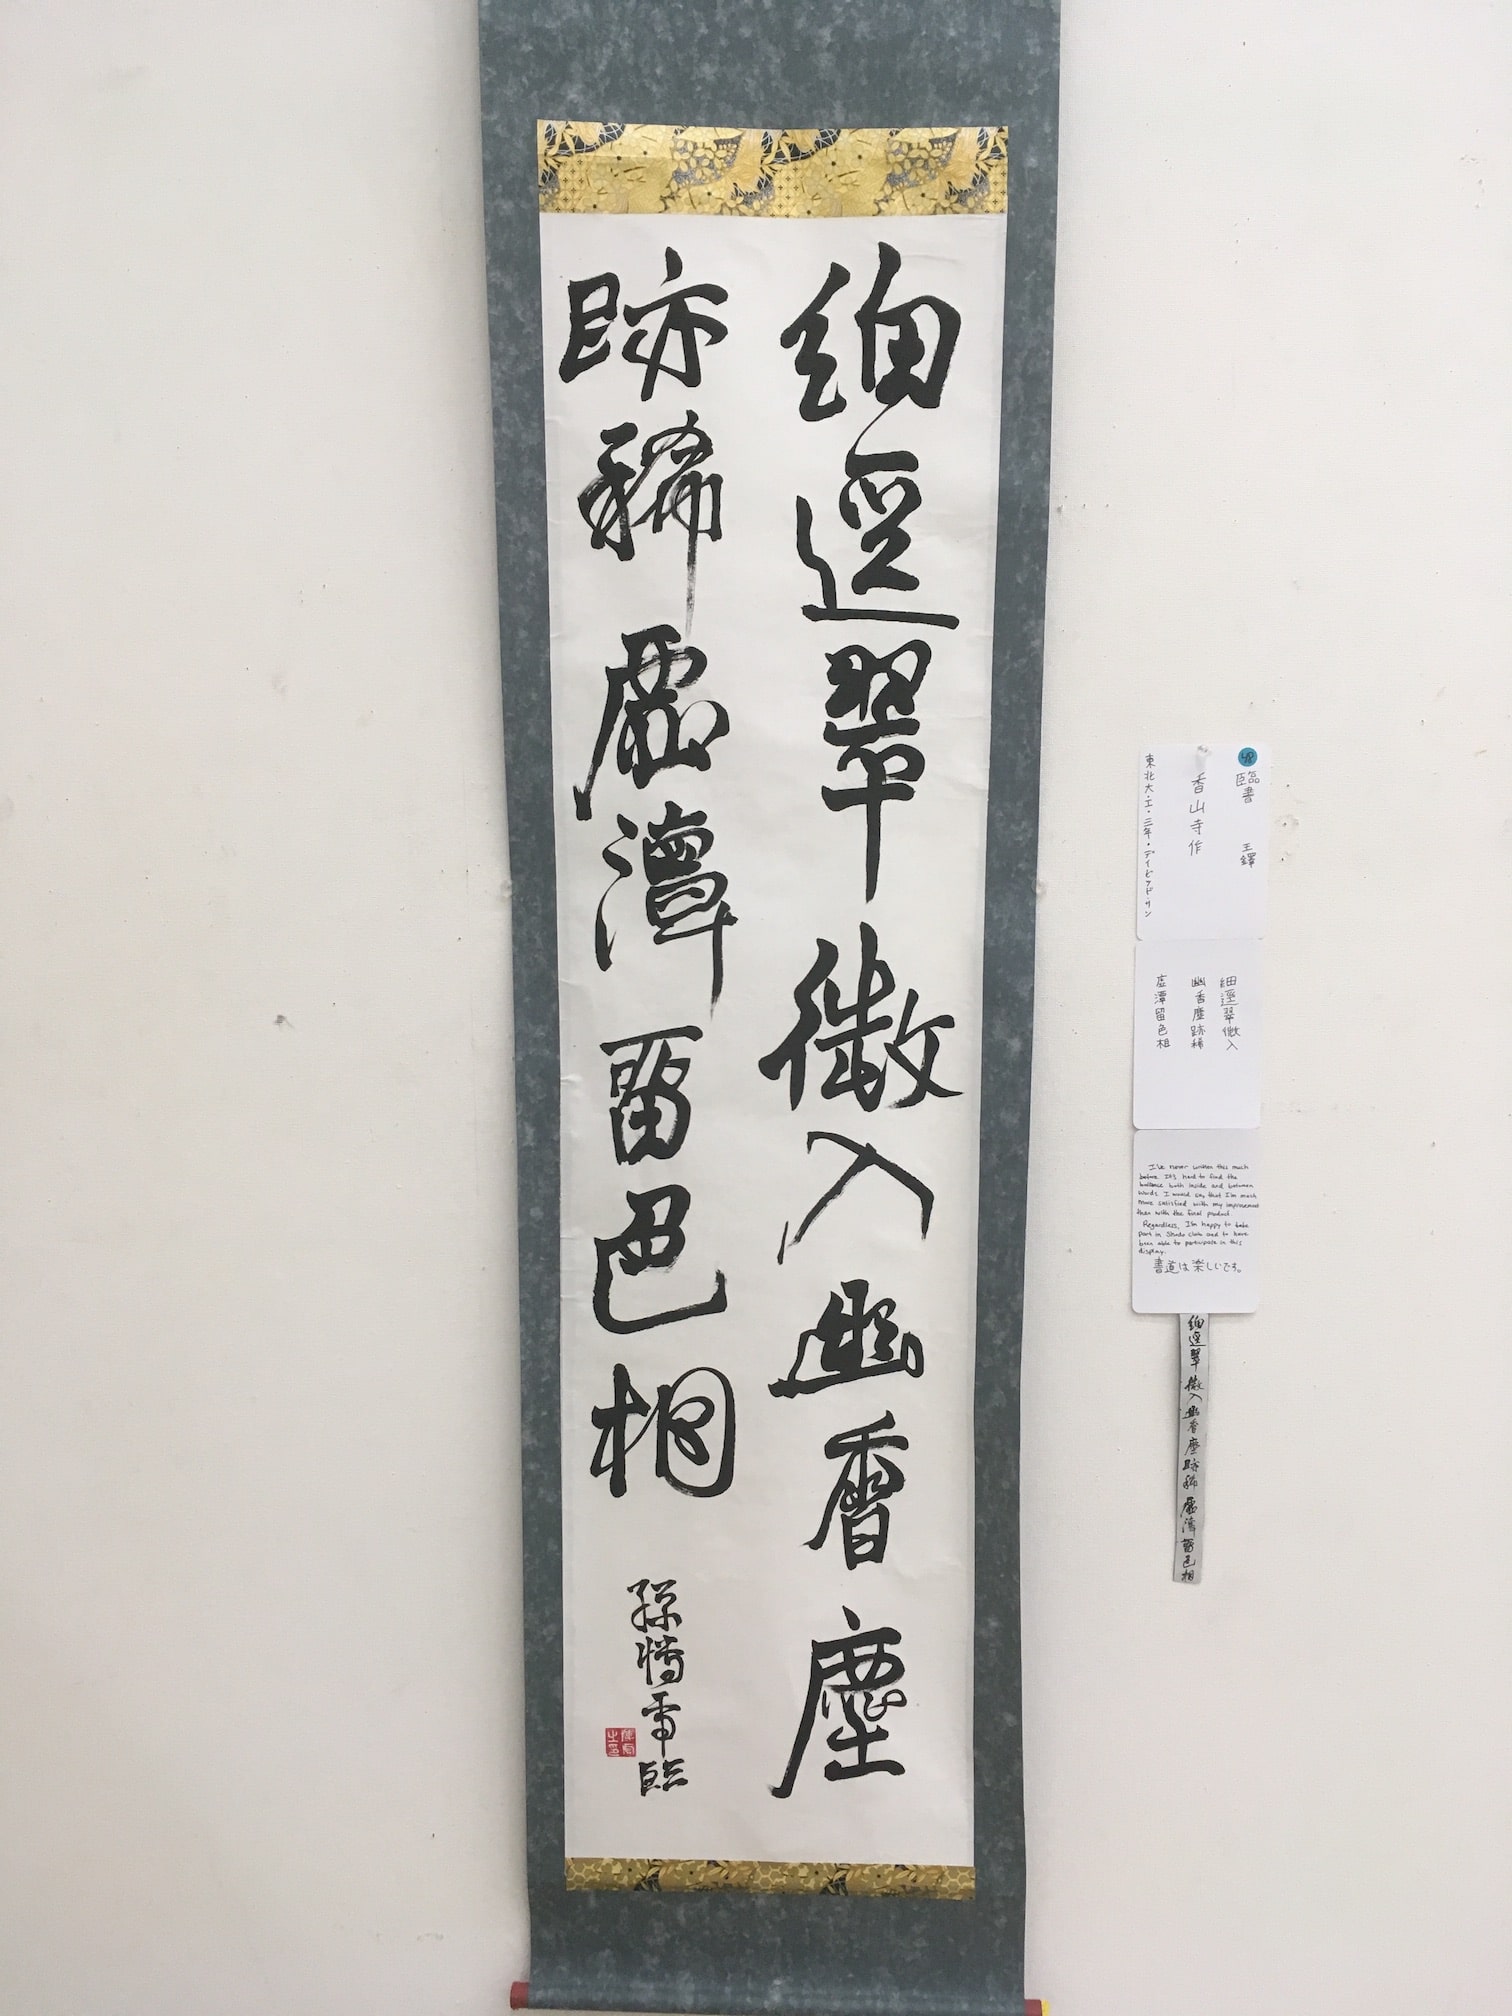 細逕翠微入幽香塵
跡稀虛潭留色相
臨
48
臨書 王鐸
香山寺作
東北大・工・三年・デイビッド・サン
細逕翠微入
幽香塵跡稀
虚潭留色相
I've never written this much
before. It's hard to find the
ballance both inside and between
words. I would say that I'm much
more satisfied with my improvement
then with the final product.
Regardless, I'm happy to take
part in Shodo club and to have
been able to participate in this
display.
書道は楽しいです。
細逕翠微入幽香塵跡稀虛潭留色相